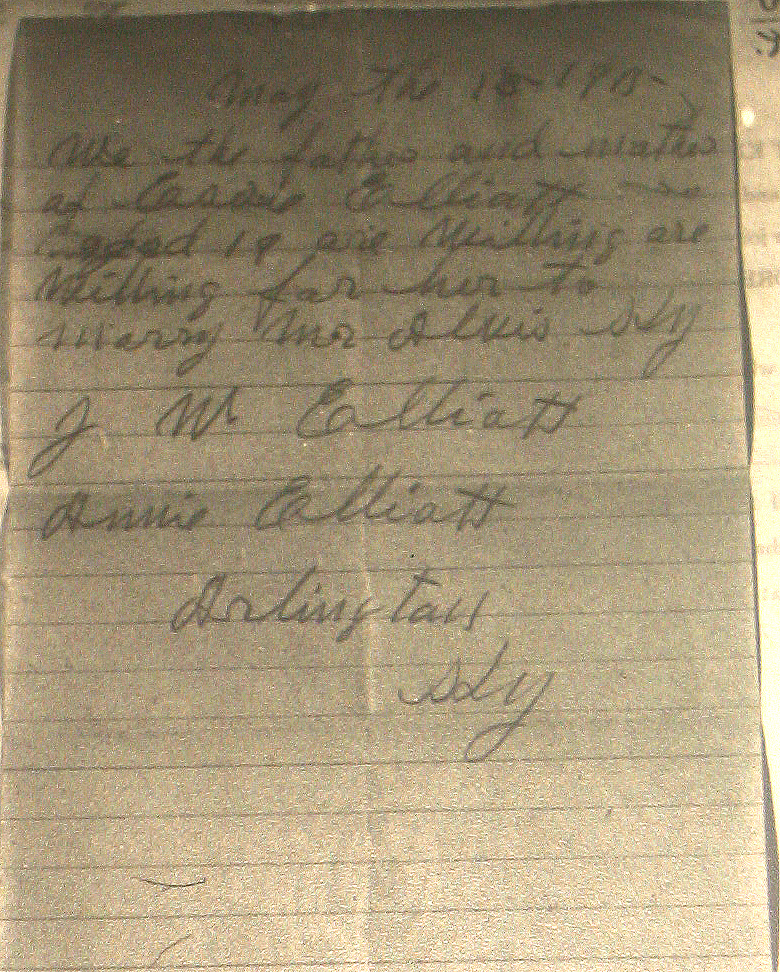 May the 15 19
We the father and mother
of Elliott
aged 19 are Willing are
Willing for her to
Marry Mr Alvis Sky
J W Elliott
Annie Elliott
Arlington
Ky